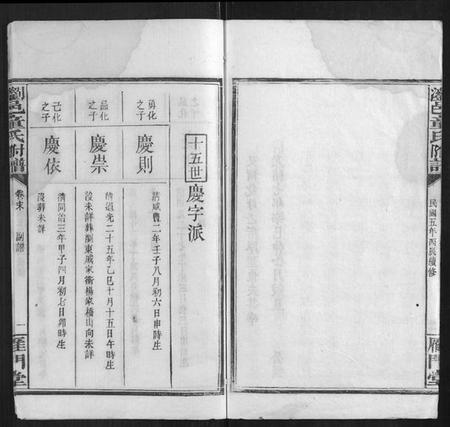 瀏邑童氏附譜
民國五年丙辰續修
雁門堂
十五世
慶字派
勇化之子
慶則
清咸豐二年壬子八月初六日申時生
品化之子
慶崇
清道光二十五年乙巳十月十五日午時生
沒未詳葬瀏東戚家衝楊家橋山向未詳
己化之子
慶依
清同治三年甲子四月初七日卯時生
沒葬未詳
瀏邑童氏附譜
卷末
副譜
一
雁門堂